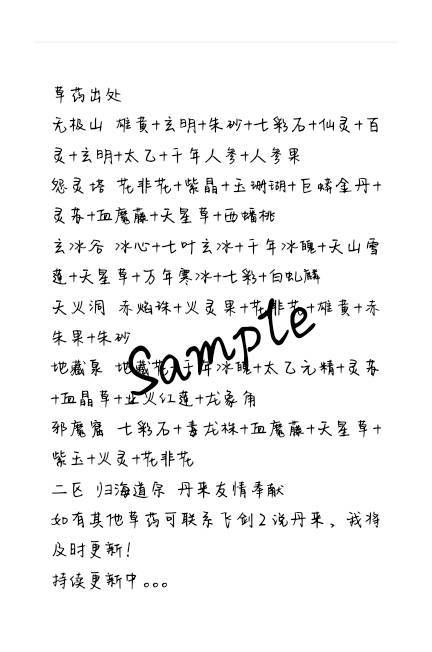 草药出处
无极山 雄黄+玄明+朱砂+七彩石+仙灵+百
灵+玄明+太乙+千年人参+人参果
怨灵塔 花非花+紫晶+玉珊瑚+巨蟒金丹+
灵芝+血魔藤+天星草+西蟠桃
玄冰谷 冰心+七叶玄冰+千年冰魄+天山雪
莲+天星草+万年寒冰+七彩+白虬麟
天火洞 赤焰珠+火灵果+花非花+雄黄+赤
朱果+朱砂
地藏泉 地藏花+千年冰魄+太乙元精+灵芝
+血晶草+业火红莲+龙象角
邪魔窟 七彩石+毒龙株+血魔藤+天星草+
紫玉+火灵+花非花
二区 归海道宗 丹来友情奉献
如有其他草药可联系飞剑2说丹来，我将
及时更新！
持续更新中。。。
Sample